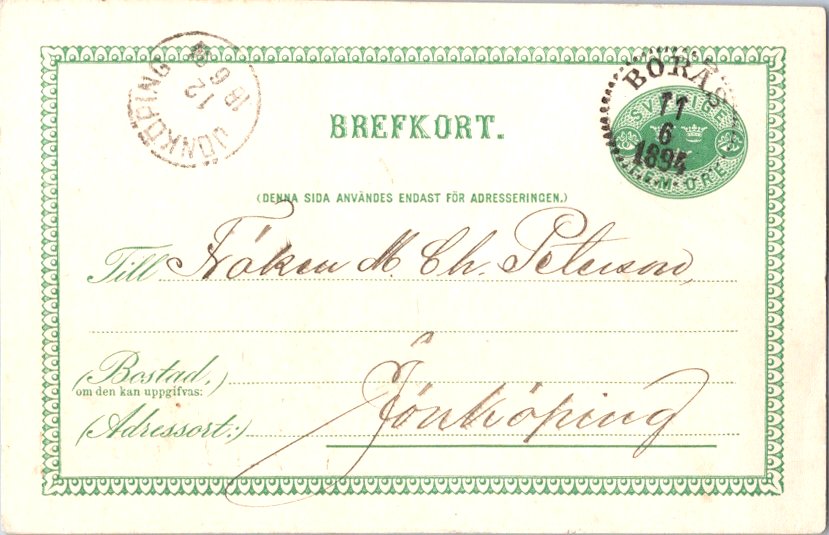 JÖNKÖPING
12
6
BORÅS
11
6
1894
SVERIGE
FEM ÖRE
BREFKORT.
(DENNA SIDA ANVÄNDES ENDAST FÖR ADRESSERINGEN.)
Till Fröken M. Ch. Peterson,
(Bostad,)
om den kan uppgifvas:
(Adressort:) Jönköping